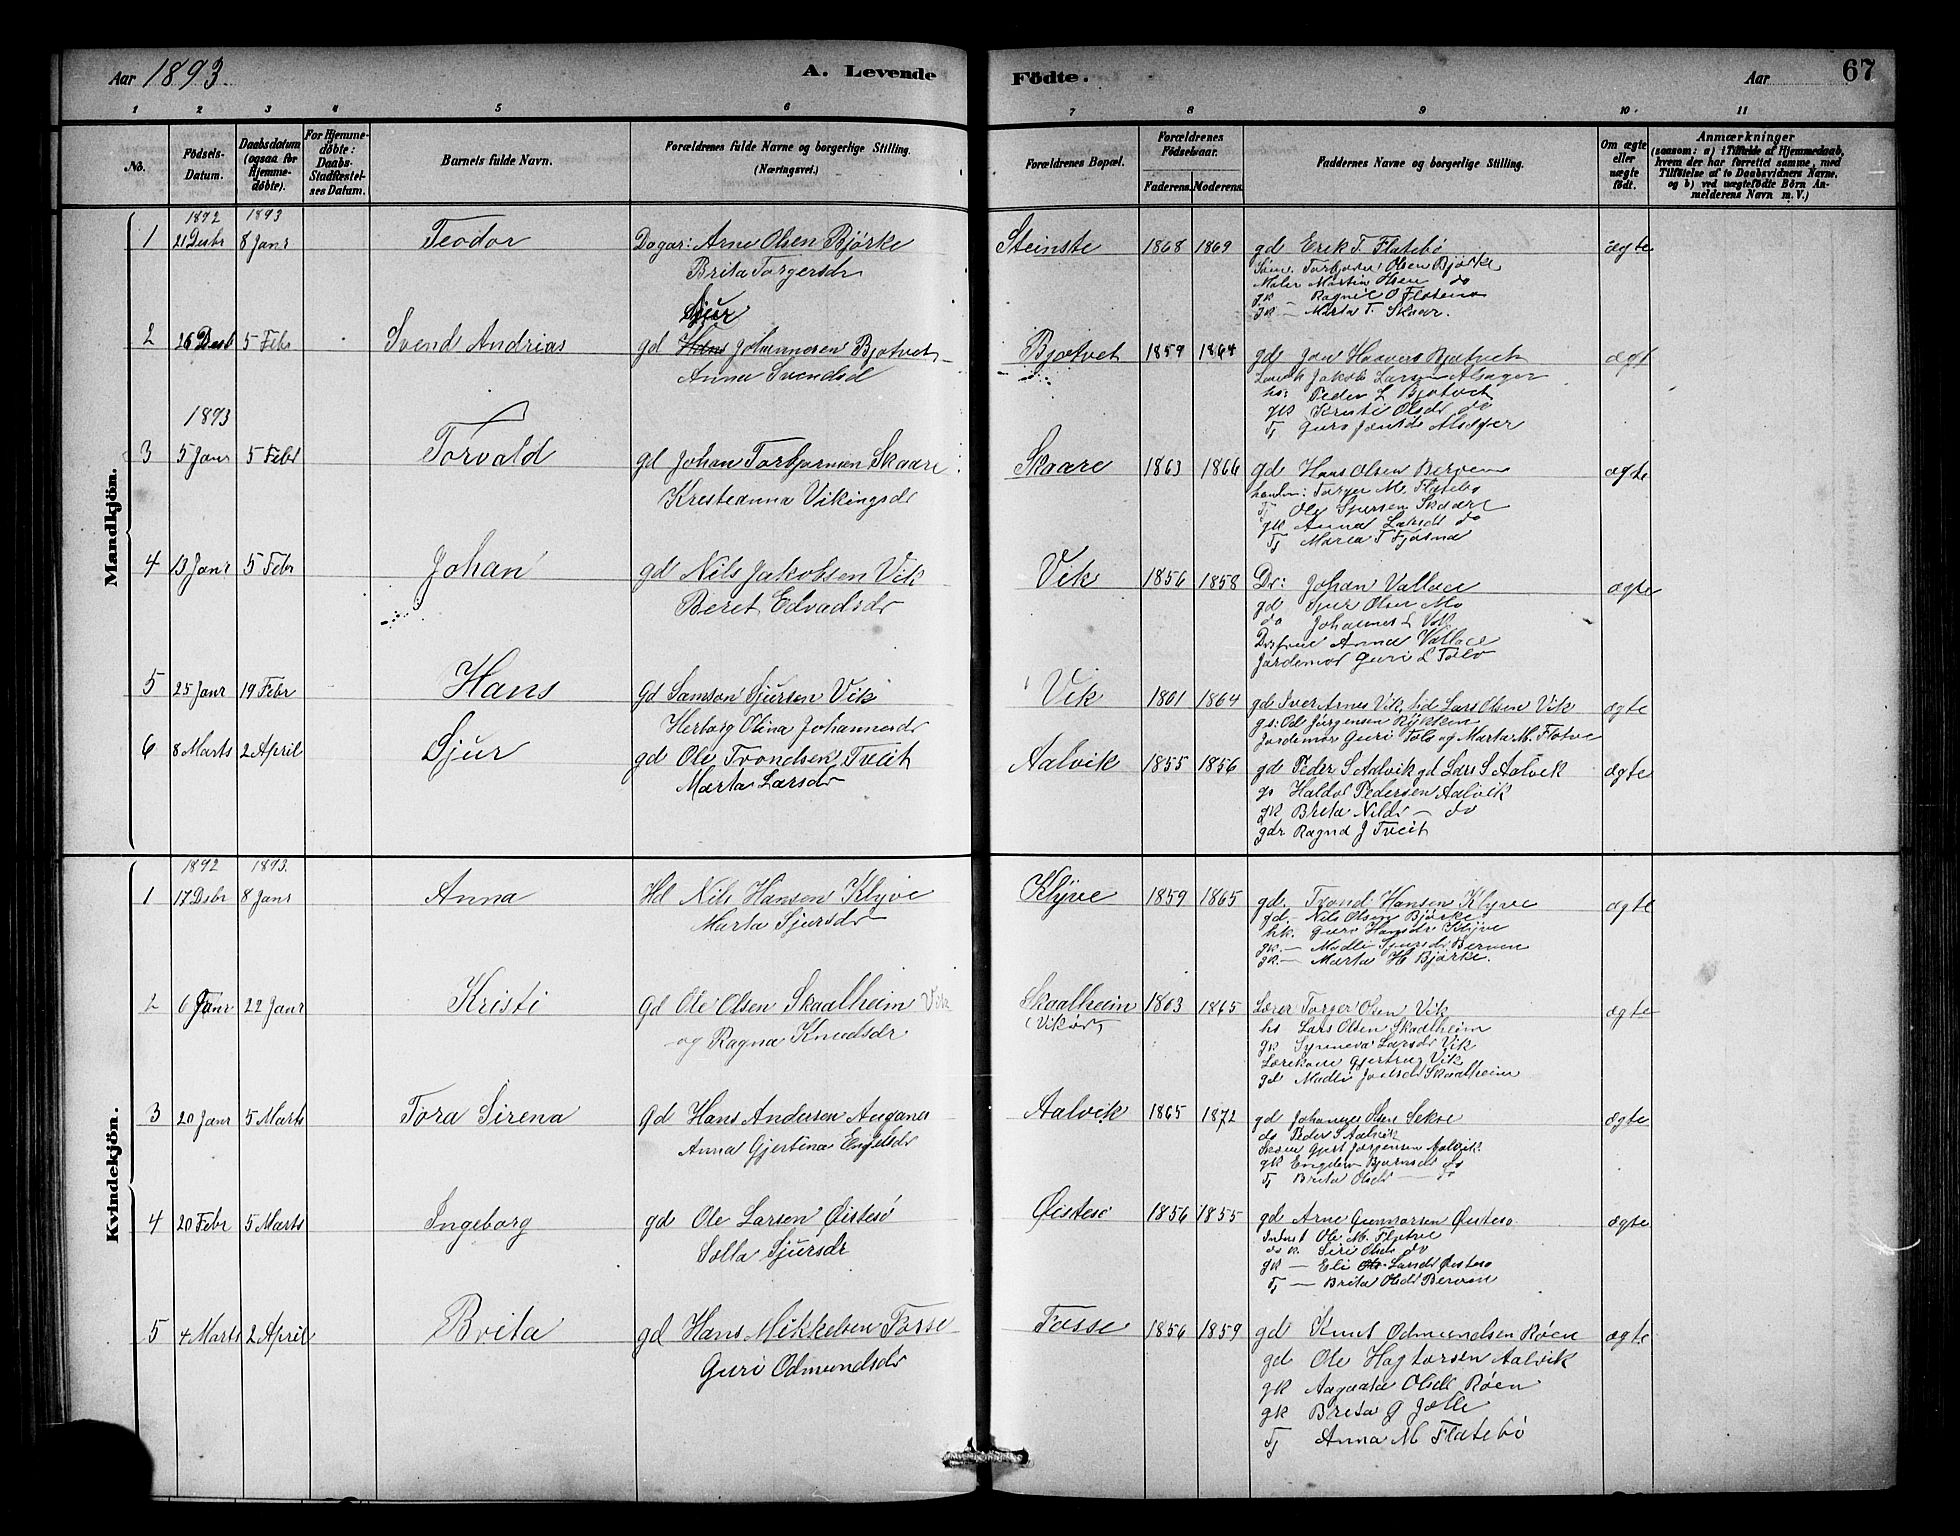 Aar 1893. A. Levende Födte. Aar 67
1 2 3 4 5 6 7 8 9 10 11
No. Födsels-Datum. Daabsdatum (ogsaa for Hjemmedöbte). For Hjemmedöbte: Daabs-Stadfæstelses Datum. Barnets fulde Navn. Forældrenes fulde Navne og borgerlige Stilling. (Næringsvei.) Forældrenes Bopæl. Forældrenes Födselsaar. Faderens. Moderens. Faddernes Navne og borgerlige Stilling. Om ægte eller uægte födt. Anmærkninger (saasom: a) i Tilfælde af Hjemmedaab, hvem der har forrettet samme, med Tilföielse af to Daabsvidners Navne, og b) ved uægtefödte Börn Anmelderens Navn m. V.)
Mandkjön.
1892 1893
1 21 Desbr 8 Janr Teodor Dagar: Arne Olsen Bjørke Steinstø 1868 1869 gd Erik T. Flatebø ægte
Brita Torgersdr Torbjørn Olsen Bjørke
Maler Martin Olsen do
gk Ragnil O Flatebø
gk — Marta T. Skaar.
Sjur
2 26 Desb 5 Febr Svend Andrias gd Hans Johannesen Bjotvet Bjotvet 1859 1864 gd Jon Haavers Bjotvet ægt
Anna Svendsd Jakob Larsen Alsager
hs: Peder L Bjotvet
gk Kersti Olsdr do
Tj Guro Alsager
1893
3 5 Janr 5 Febr Torvald gd Johan Torbjørnsen Skaare Skaare 1863 1866 gd Hans Olsen Berven ægte
Kresteanna Vikingsdr Torger M. Flatebø
Tj Ole Sjursen Skaare
gk Anna Larsdr do
Tj Maria T Fjøsne
4 13 Janr 5 Febr Johan gd Nils Jakobsen Vik Vik 1856 1858 Dr: Johan Vallace ægte
Beret Edvadsdr gd Sjur Olsen Mo
do Johannes L Vik
Drfrue Anna Vallace
Jordemor Guri L Tolo
5 25 Janr 19 Febr Hans Gd Samson Sjursen Vik Vik 1861 1864 gd Iver Arnes Vik, Lars Olsen Vik ægte
Herborg Olina Johannesdr gs: Ole Jørgensen Rykken
Jordemor Guri Tolo og Marta M. Flotve
6 8 Marts 2 April Sjur gd Ole Trondsen Tveit Aalvik 1855 1856 gd Peder S Aalvik gd Lars S Aalvik ægte
Marta Larsdr gs Haldor Pedersen Aalvik
gk Brita Nilsdr — do
gdr Ragna J Tveit
Kvindekjön.
1892 1893.
1 17 Dsbr 8 Janr Anna Hd Nils Hansen Klyve Klyve 1859 1865 gd. Trond Hansen Klyve ægte
Marta Sjursdr gd — Nils Olsen Bjørke
hk. Guro Hansdr Klyve
gk. — Madli Sjursdr Berven
gk. — Marta H Bjørke.
2 6 Janr 22 Janr Kristi Gd Ole Olsen Skaalheim Vik Skaalheim 1863 1865 Lærer Torger Olsen Vik ægte
og Ragna Knudsdr (Vikør) hs Lars Olsen Skaalheim
gk Synneva Larsdr Vik
Lærekone Gjertrug Vik
gd Madli Skaalheim
3 20 Janr 5 Marts Tora Sirena Gd Hans Andersen Augana Aalvik 1865 1872 gd Johannes Olsen Sekse ægte
Anna Gjertina Engelsdr do Peder S Aalvik
Gjert Jørgensen Aalvik.
gk Engelen Bjørnsdr do
Tj Brita Olsdr — do
4 20 Febr 5 Marts Ingeborg gd Ole Larsen Øistesø Øistesø 1856 1855 gd Arne Gunnarsen Øistesø ægte
Solla Sjursdr Ole M. Flotve
do k. Siri Olsdr do
gk — Eli Larsdr Øistesø
Tj — Brita Olsdr Berven
5 4 Marts 2 April Brita gd Hans Mikkelsen Fosse Fosse 1856 1859 gd Knut Odmundsen Røen ægte
Guri Odmundsdr gd Ole Hagtorsen Aalvik
gk Aagaata Olsdr Røen
gk Brita G Jælle
Tj Anna M Flatebø